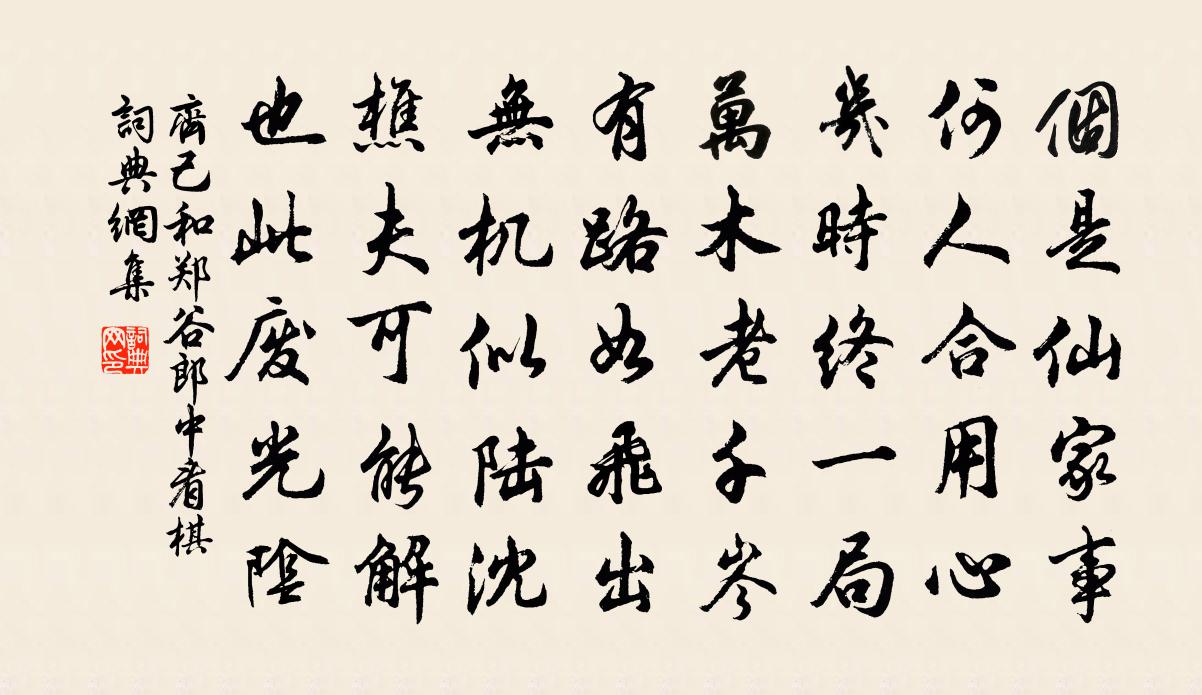 個是仙家事
何人合用心
幾時終一局
萬木老千岑
有路如飛出
無机似陆沈
樵夫可能解
也此废光陰
齊己和郑谷郎中看棋
詞典網集
詞典网印